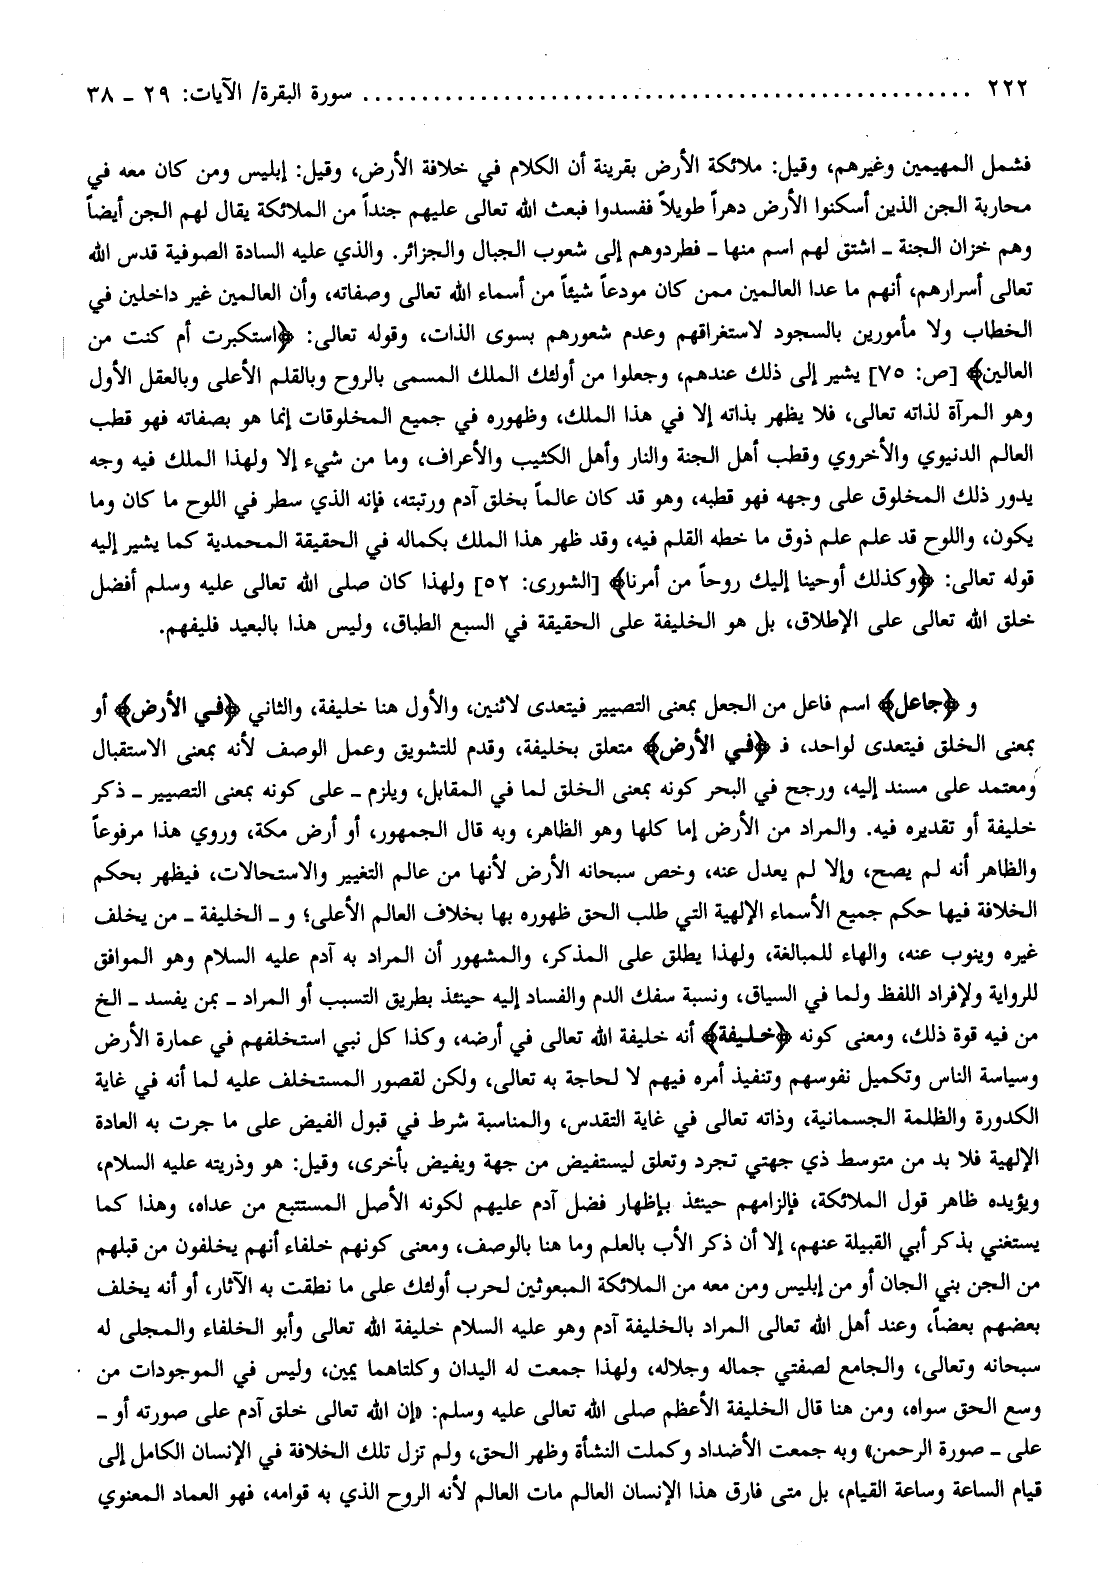 ٢٢٢ ........................................................ سورة البقرة/ الآيات: ٢٩ ـ ٣٨
فشمل المهيمين وغيرهم، وقيل: ملائكة الأرض بقرينة أن الكلام في خلافة الأرض، وقيل: إبليس ومن كان معه في
محاربة الجن الذين أسكنوا الأرض دهراً طويلاً ففسدوا فبعث الله تعالى عليهم جنداً من الملائكة يقال لهم الجن أيضاً
وهم خزان الجنة ـ اشتق لهم اسم منها ـ فطردوهم إلى شعوب الجبال والجزائر. والذي عليه السادة الصوفية قدس الله
تعالى أسرارهم، أنهم ما عدا العالمين ممن كان مودعاً شيئاً من أسماء الله تعالى وصفاته، وأن العالمين غير داخلين في
الخطاب ولا مأمورين بالسجود لاستغراقهم وعدم شعورهم بسوى الذات، وقوله تعالى: ﴿استكبرت أم كنت من
العالين﴾ [ص: ٧٥] يشير إلى ذلك عندهم، وجعلوا من أولئك الملك المسمى بالروح وبالقلم الأعلى وبالعقل الأول
وهو المرآة لذاته تعالى، فلا يظهر بذاته إلا في هذا الملك، وظهوره في جميع المخلوقات إنما هو بصفاته فهو قطب
العالم الدنيوي والأخروي وقطب أهل الجنة والنار وأهل الكثيب والأعراف، وما من شيء إلا ولهذا الملك فيه وجه
يدور ذلك المخلوق على وجهه فهو قطبه، وهو قد كان عالماً بخلق آدم ورتبته، فإنه الذي سطر في اللوح ما كان وما
يكون، واللوح قد علم علم ذوق ما خطه القلم فيه، وقد ظهر هذا الملك بكماله في الحقيقة المحمدية كما يشير إليه
قوله تعالى: ﴿وكذلك أوحينا إليك روحاً من أمرنا﴾ [الشورى: ٥٢] ولهذا كان صلى الله تعالى عليه وسلم أفضل
خلق الله تعالى على الإطلاق، بل هو الخليفة على الحقيقة في السبع الطباق، وليس هذا بالبعيد فليفهم.
و ﴿جاعل﴾ اسم فاعل من الجعل بمعنى التصيير فيتعدى لاثنين، والأول هنا خليفة، والثاني ﴿في الأرض﴾ أو
بمعنى الخلق فيتعدى لواحد، فـ ﴿في الأرض﴾ متعلق بخليفة، وقدم للتشويق وعمل الوصف لأنه بمعنى الاستقبال
ومعتمد على مسند إليه، ورجح في البحر كونه بمعنى الخلق لما في المقابل، ويلزم ـ على كونه بمعنى التصيير ـ ذكر
خليفة أو تقديره فيه. والمراد من الأرض إما كلها وهو الظاهر، وبه قال الجمهور، أو أرض مكة، وروي هذا مرفوعاً
والظاهر أنه لم يصح، وإلا لم يعدل عنه، وخص سبحانه الأرض لأنها من عالم التغيير والاستحالات، فيظهر بحكم
الخلافة فيها حكم جميع الأسماء الإلهية التي طلب الحق ظهوره بها بخلاف العالم الأعلى؛ و ـ الخليفة ـ من يخلف
غيره وينوب عنه، والهاء للمبالغة، ولهذا يطلق على المذكر، والمشهور أن المراد به آدم عليه السلام وهو الموافق
للرواية ولإفراد اللفظ ولما في السياق، ونسبة سفك الدم والفساد إليه حينئذ بطريق التسبب أو المراد ـ بمن يفسد ـ الخ
من فيه قوة ذلك، ومعنى كونه ﴿خليفة﴾ أنه خليفة الله تعالى في أرضه، وكذا كل نبي استخلفهم في عمارة الأرض
وسياسة الناس وتكميل نفوسهم وتنفيذ أمره فيهم لا لحاجة به تعالى، ولكن لقصور المستخلف عليه لما أنه في غاية
الكدورة والظلمة الجسمانية، وذاته تعالى في غاية التقدس، والمناسبة شرط في قبول الفيض على ما جرت به العادة
الإلهية فلا بد من متوسط ذي جهتي تجرد وتعلق ليستفيض من جهة ويفيض بأخرى، وقيل: هو وذريته عليه السلام،
ويؤيده ظاهر قول الملائكة، فإلزامهم حينئذ بإظهار فضل آدم عليهم لكونه الأصل المستتبع من عداه، وهذا كما
يستغني بذكر أبي القبيلة عنهم، إلا أن ذكر الأب بالعلم وما هنا بالوصف، ومعنى كونهم خلفاء أنهم يخلفون من قبلهم
من الجن بني الجان أو من إبليس ومن معه من الملائكة المبعوثين لحرب أولئك على ما نطقت به الآثار، أو أنه يخلف
بعضهم بعضاً، وعند أهل الله تعالى المراد بالخليفة آدم وهو عليه السلام خليفة الله تعالى وأبو الخلفاء والمجلى له
سبحانه وتعالى، والجامع لصفتي جماله وجلاله، ولهذا جمعت له اليدان وكلتاهما يمين، وليس في الموجودات من
وسع الحق سواه، ومن هنا قال الخليفة الأعظم صلى الله تعالى عليه وسلم: «إن الله تعالى خلق آدم على صورته أو ـ
على ـ صورة الرحمن» وبه جمعت الأضداد وكملت النشأة وظهر الحق، ولم تزل تلك الخلافة في الإنسان الكامل إلى
قيام الساعة وساعة القيام، بل متى فارق هذا الإنسان العالم مات العالم لأنه الروح الذي به قوامه، فهو العماد المعنوي